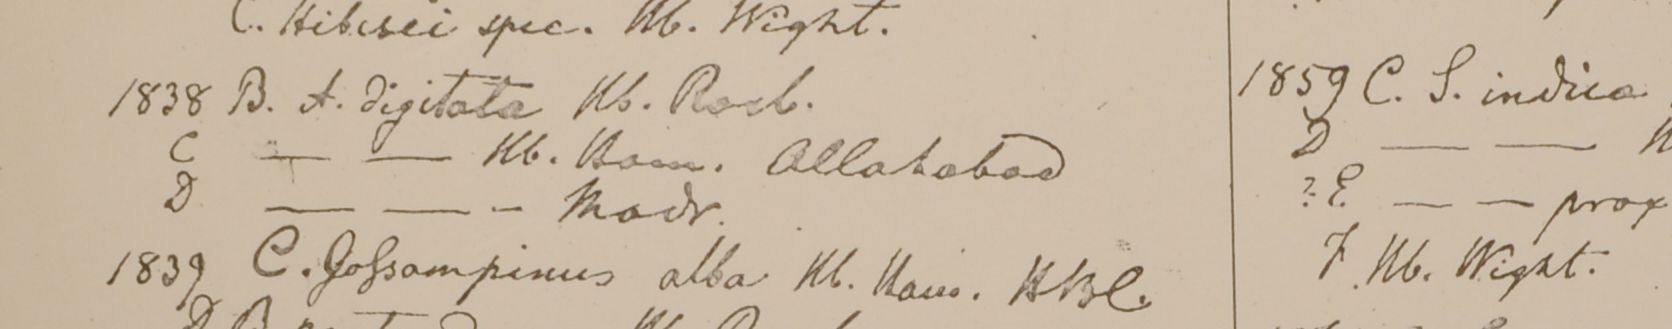 C. Hibisci spec. Hb. Wight.
1838 B. A. digitata Hb. Roxb.
C — — Hb. Ham. Allahabad
D — — - Madr.
1839 C. Gossampinus alba Hb. Ham. HBC.
1859 C. S. indica
D — —
? E — — prox
F. Hb. Wight.